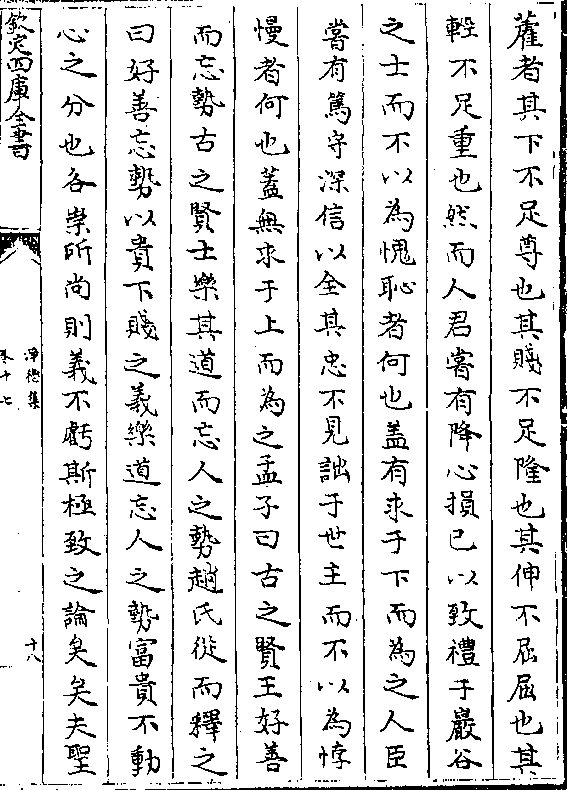 藿者其下不足尊也其賤不足隆也其伸不屈屈也其
輕不足重也然而人君嘗有降心損已以致禮于巖谷
之士而不以為愧恥者何也盖有求于下而為之人臣
嘗有篤守深信以全其忠不見詘于世主而不以為悖
慢者何也蓋無求于上而為之孟子曰古之賢王好善
而忘勢古之賢士樂其道而忘人之勢趙氏從而釋之
曰好善忘勢以貴下賤之義樂道忘人之勢富貴不動
心之分也各崇所尚則義不虧斯極致之論矣矣夫聖
欽定四庫全書
淨德集
卷十七
十八